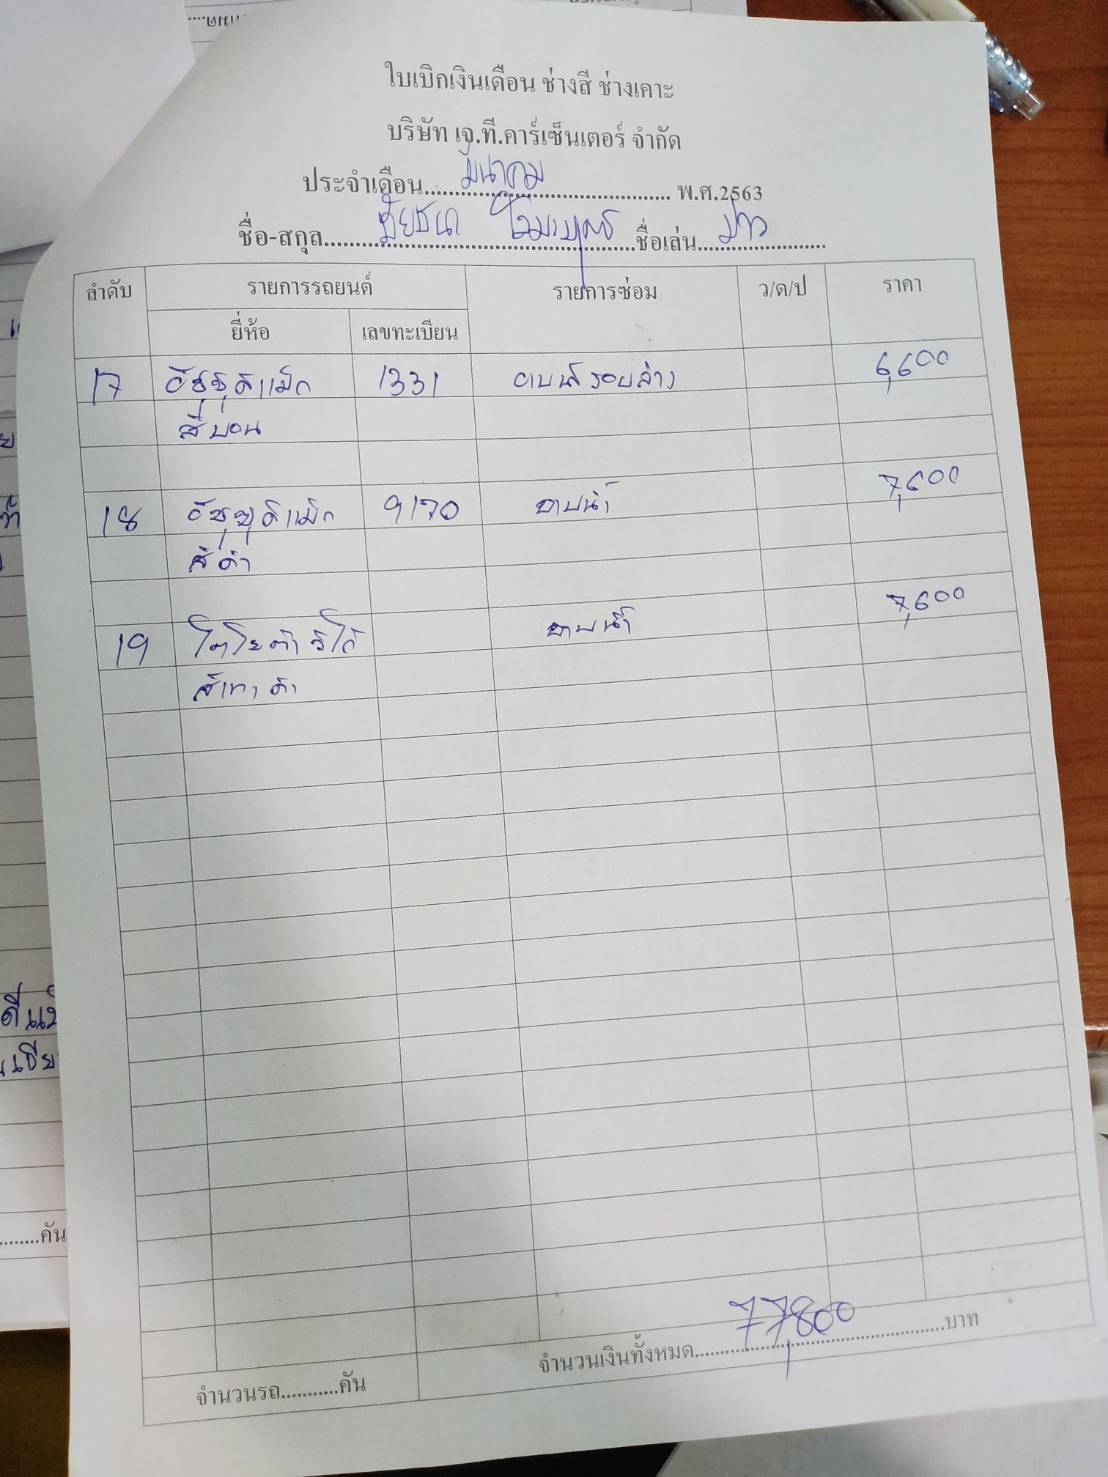 ใบเบิกเงินเดือน ช่างสี ช่างเคาะ
บริษัท เจ.ที.คาร์เซ็นเตอร์ จำกัด
ประจำเดือน มีนาคม พ.ศ.2563
ชื่อ-สกุล ชื่อเล่น
ลำดับ รายการรถยนต์ รายการซ่อม ว/ด/ป ราคา
ยี่ห้อ เลขทะเบียน
17 อีซูซุดีแม็ก 1331 อาบน้ำรอบล่าง 6,600
สีบอน
18 อีซูซุดีแม็ก 9170 อาบน้ำ 7,600
สีดำ
19 โตโยต้าวีโก้ อาบน้ำ 7,600
สีเทาดำ
จำนวนรถ...........คัน จำนวนเงินทั้งหมด 77,800 บาท
คัน